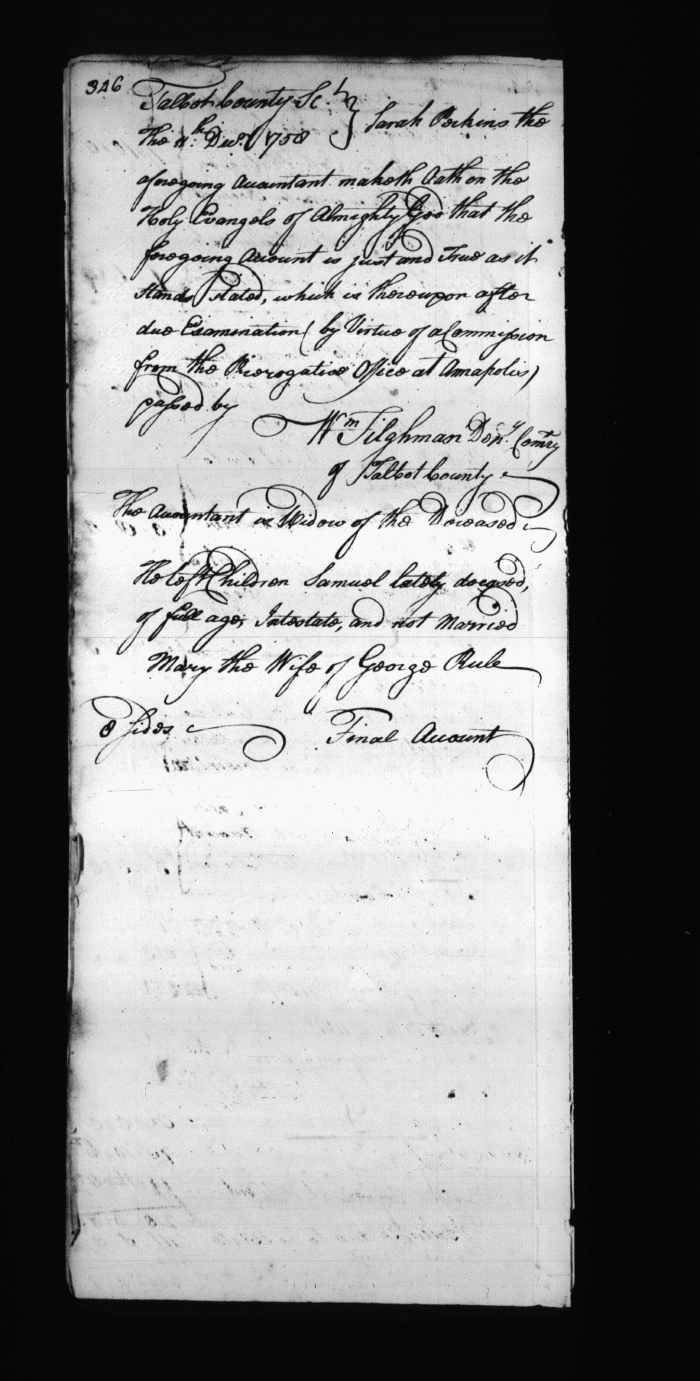 346
Talbot County Sc.
The 11th. Decr. 1758 } Sarah Perkins the
aforegoing Accountant maketh Oath on the
Holy Evangels of Almighty God that the
foregoing Account is just and True as it
stands stated, which is thereupon after
due Examination (by Virtue of a Commission
from the Prerogative Office at Annapolis)
passed by
Wm Tilghman Depy. Comry
of Talbot County
The Accountant is Widow of the Deceased
He left Children Samuel lately deceased,
of full age, Intestate, and not Married
Mary the Wife of George Rule
8 sides
Final Account